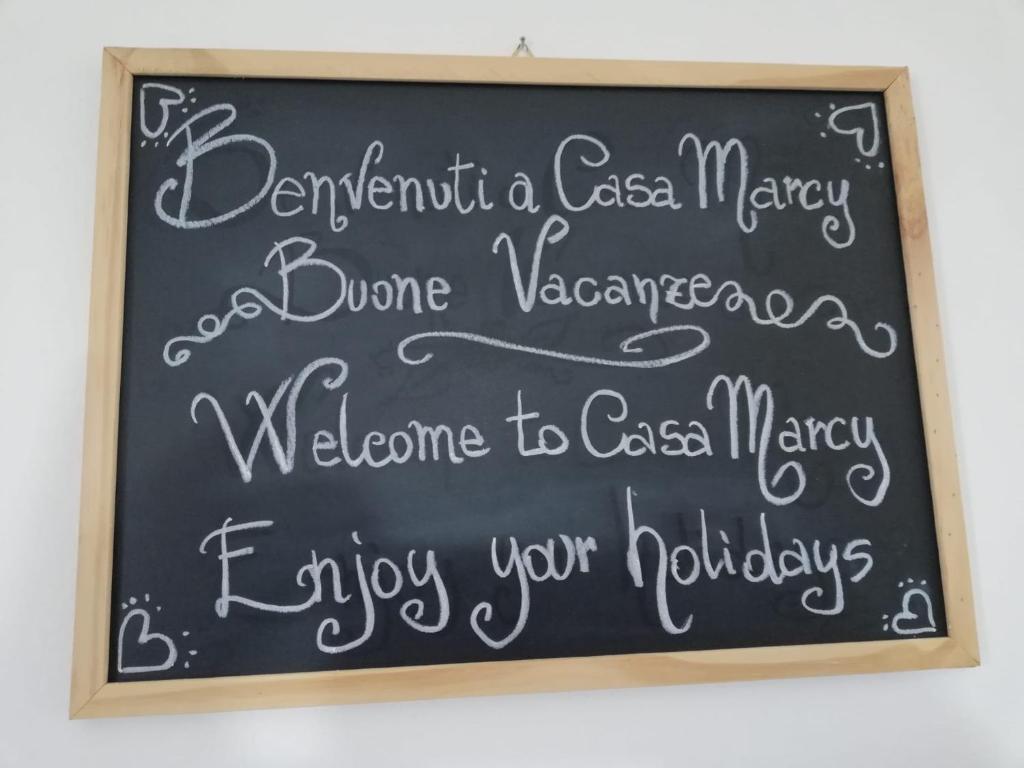 Benvenuti a Casa Marcy
Buone Vacanze
Welcome to Casa Marcy
Enjoy your holidays